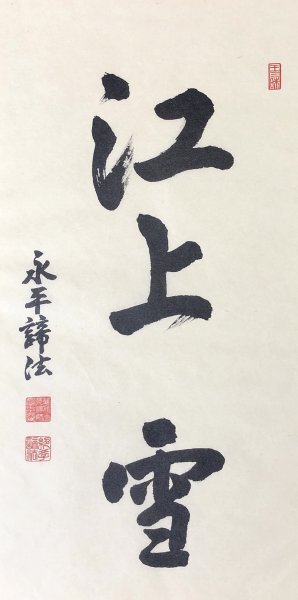 江上雪
永平諦法